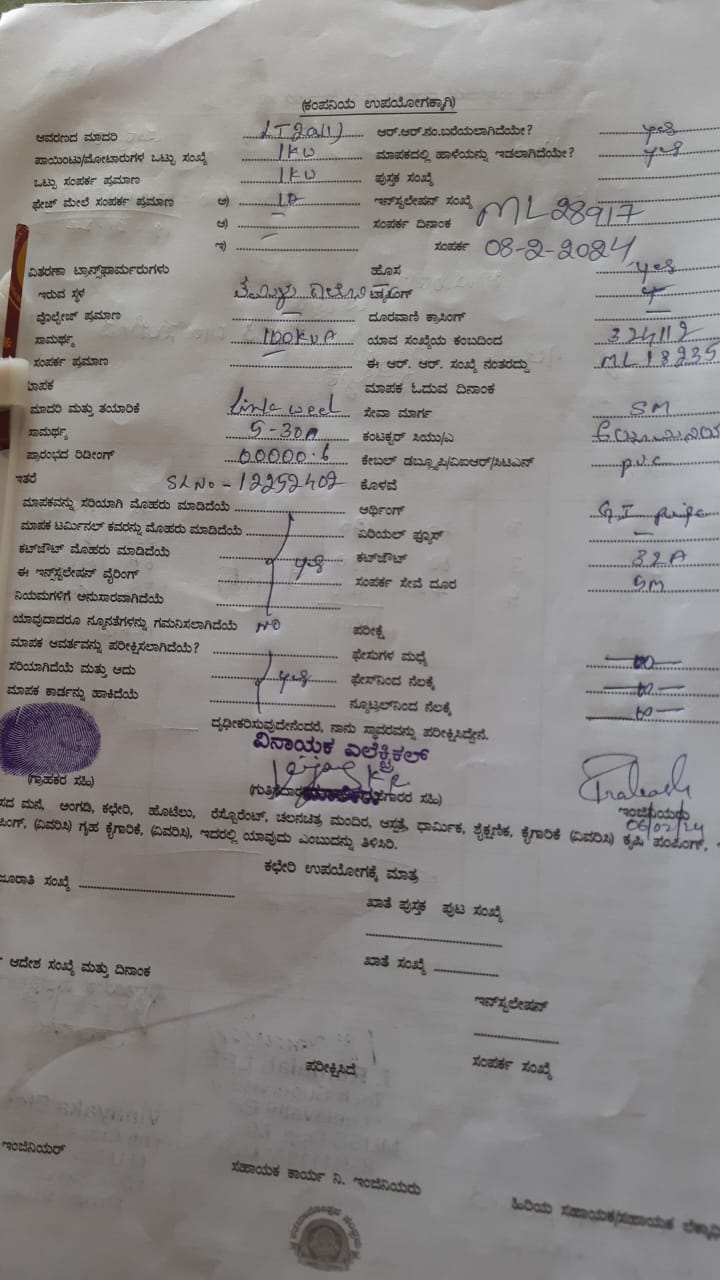 (ಕಂಪನಿಯ ಉಪಯೋಗಕ್ಕಾಗಿ)
ಆವರಣದ ಮಾದರಿ LT2a(1) ಆರ್.ಆರ್.ನಂ.ಬರೆಯಲಾಗಿದೆಯೇ? yes
ಪಾಯಿಂಟು/ಮೋಟಾರುಗಳ ಒಟ್ಟು ಸಂಖ್ಯೆ 1KW ಮಾಪಕದಲ್ಲಿ ಹಾಳೆಯನ್ನು ಇಡಲಾಗಿದೆಯೇ? yes
ಒಟ್ಟು ಸಂಪರ್ಕ ಪ್ರಮಾಣ 1KW ಪುಸ್ತಕ ಸಂಖ್ಯೆ
ಫೇಜ್ ಮೇಲೆ ಸಂಪರ್ಕ ಪ್ರಮಾಣ ಅ) ಇನ್‌ಸ್ಟಲೇಷನ್ ಸಂಖ್ಯೆ ML28917
ಆ) — ಸಂಪರ್ಕ ದಿನಾಂಕ
ಇ) — ಸಂಪರ್ಕ 08-2-2024
ವಿತರಣಾ ಟ್ರಾನ್ಸ್‌ಫಾರ್ಮರುಗಳು ಹೊಸ yes
ಇರುವ ಸ್ಥಳ ಟ್ಯಾಪಿಂಗ್
ವೊಲ್ಟೇಜ್ ಪ್ರಮಾಣ — ದೂರವಾಣಿ ಕ್ರಾಸಿಂಗ್ —
ಸಾಮರ್ಥ್ಯ 100KVA ಯಾವ ಸಂಖ್ಯೆಯ ಕಂಬದಿಂದ 324112
ಸಂಪರ್ಕ ಪ್ರಮಾಣ — ಈ ಆರ್. ಆರ್. ಸಂಖ್ಯೆ ನಂತರದ್ದು ML18235
ಮಾಪಕ ಓದುವ ದಿನಾಂಕ
ಮಾದರಿ ಮತ್ತು ತಯಾರಿಕೆ Linkwell ಸೇವಾ ಮಾರ್ಗ SM
ಸಾಮರ್ಥ್ಯ 5-30A ಕಂಟಕ್ಟರ್ ಸಿಯು/ಎ
ಪ್ರಾರಂಭದ ರಿಡೀಂಗ್ 00000.6 ಕೇಬಲ್ ಡಬ್ಲೂಪಿ/ವಿಐಆರ್/ಸಿಟಿಎಸ್ p.v.c
ಇತರೆ SLNo-12252402 ಕೊಳವೆ
ಮಾಪಕವನ್ನು ಸರಿಯಾಗಿ ಮೊಹರು ಮಾಡಿದೆಯೆ ಅರ್ಥಿಂಗ್ G.I pipe
ಮಾಪಕ ಟರ್ಮಿನಲ್ ಕವರನ್ನು ಮೊಹರು ಮಾಡಿದೆಯೆ ಏರಿಯಲ್ ಫ್ಯೂಸ್ —
ಕಟ್‌ಔಟ್ ಮೊಹರು ಮಾಡಿದೆಯೆ yes ಕಟ್‌ಔಟ್ 32A
ಈ ಇನ್‌ಸ್ಟಲೇಷನ್ ವೈರಿಂಗ್ ಸಂಪರ್ಕ ಸೇವೆ ದೂರ 5M
ನಿಯಮಗಳಿಗೆ ಅನುಸಾರವಾಗಿದೆಯೆ
ಯಾವುದಾದರೂ ನ್ಯೂನತೆಗಳನ್ನು ಗಮನಿಸಲಾಗಿದೆಯೆ NO ಪರೀಕ್ಷೆ
ಮಾಪಕ ಆವರ್ತವನ್ನು ಪರೀಕ್ಷಿಸಲಾಗಿದೆಯೆ? ಫೇಸುಗಳ ಮಧ್ಯೆ
ಸರಿಯಾಗಿದೆಯೆ ಮತ್ತು ಅದು yes ಫೇಸ್‌ನಿಂದ ನೆಲಕ್ಕೆ
ಮಾಪಕ ಕಾರ್ಡನ್ನು ಹಾಕಿದೆಯೆ ನ್ಯೂಟ್ರಲ್‌ನಿಂದ ನೆಲಕ್ಕೆ
ದೃಢೀಕರಿಸುವುದೇನೆಂದರೆ, ನಾನು ಸ್ಥಾವರವನ್ನು ಪರೀಕ್ಷಿಸಿದ್ದೇನೆ.
ವಿನಾಯಕ ಎಲೆಕ್ಟ್ರಿಕಲ್
ಮಾಲಿಕರು
(ಗ್ರಾಹಕರ ಸಹಿ) ಇಂಜಿನಿಯರು
06/02/24
ಮನೆ, ಅಂಗಡಿ, ಕಛೇರಿ, ಹೊಟೆಲು, ರೆಸ್ಟೊರೆಂಟ್, ಚಲನಚಿತ್ರ ಮಂದಿರ, ಆಸ್ಪತ್ರೆ, ಧಾರ್ಮಿಕ, ಶೈಕ್ಷಣಿಕ, ಕೈಗಾರಿಕೆ (ವಿವರಿಸಿ) ಕೃಷಿ ಪಂಪಿಂಗ್,
(ವಿವರಿಸಿ) ಗೃಹ ಕೈಗಾರಿಕೆ, (ವಿವರಿಸಿ), ಇದರಲ್ಲಿ ಯಾವುದು ಎಂಬುದನ್ನು ತಿಳಿಸಿರಿ.
ಕಛೇರಿ ಉಪಯೋಗಕ್ಕೆ ಮಾತ್ರ
ಸಂಖ್ಯೆ ಖಾತೆ ಪುಸ್ತಕ ಪುಟ ಸಂಖ್ಯೆ
ಆದೇಶ ಸಂಖ್ಯೆ ಮತ್ತು ದಿನಾಂಕ ಖಾತೆ ಸಂಖ್ಯೆ
ಇನ್‌ಸ್ಟಲೇಷನ್
ಪರೀಕ್ಷಿಸಿದೆ ಸಂಪರ್ಕ ಸಂಖ್ಯೆ
ಇಂಜಿನಿಯರ್ ಸಹಾಯಕ ಕಾರ್ಯ ನಿ. ಇಂಜಿನಿಯರು ಹಿರಿಯ ಸಹಾಯಕ/ಸಹಾಯಕ